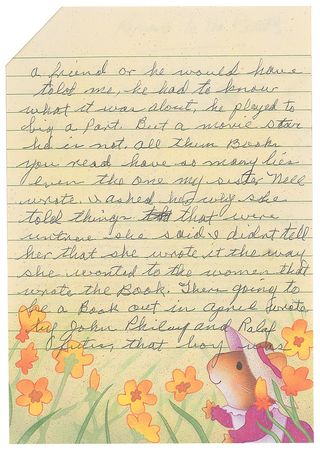 a friend or he would have
told me, he had to know
what it was about, he played to
big a Part. But a movie star
he is not. all them Books
you read have so many lies
even the one my sister Nell
wrote I ashed her why she
told things that were
untrue she said I didnt tell
her that she wrote it the way
she wanted to the women that
wrote the Book. There going to
be a Book out in april wrote
by John Philay and Ralph
that boy was